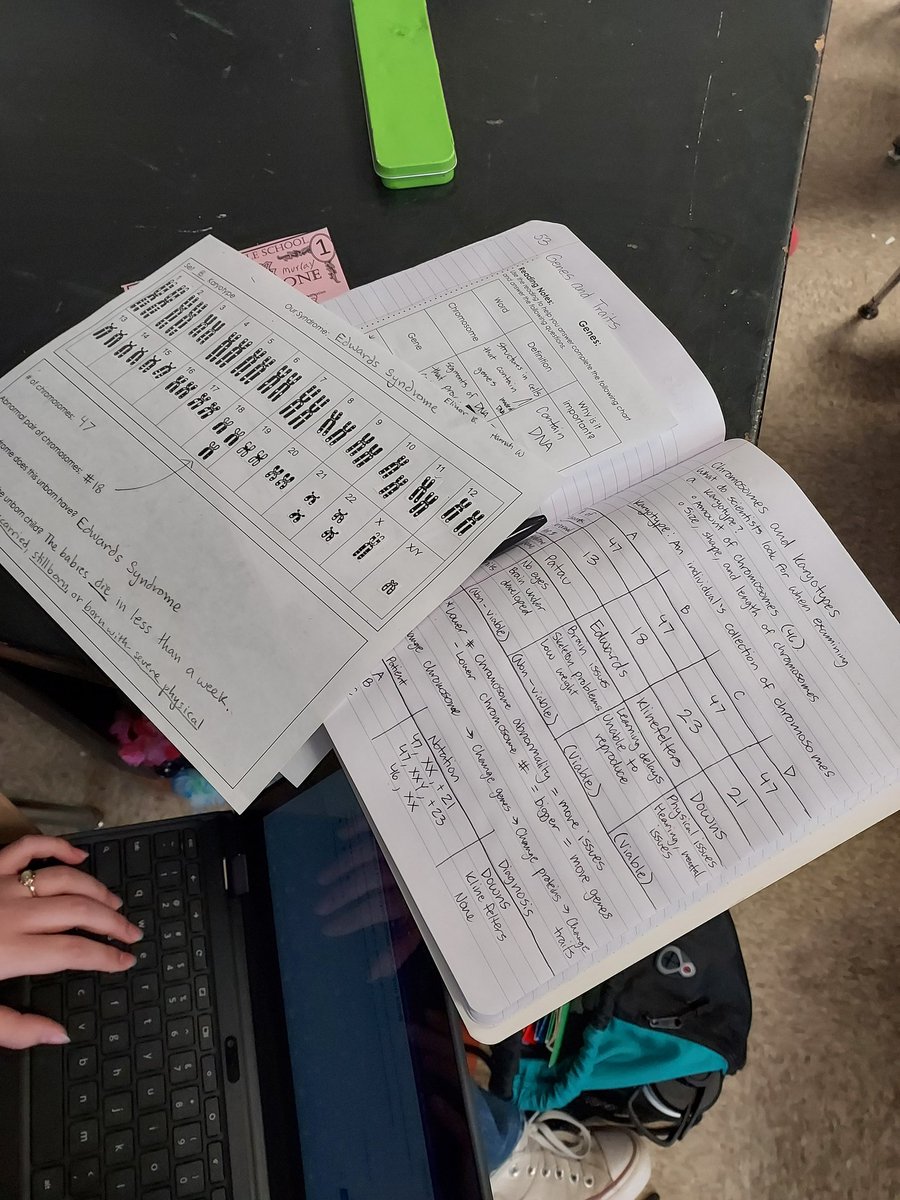 LE SCHOOL
1
Murray
ONE
Set B Karyotype
Our Syndrome: Edwards Syndrome
2
3
4
5
6
7
8
9
10
11
12
13
14
15
16
17
18
19
20
21
22
X
X/Y
# of chromosomes: 47
Abnormal pair of chromosomes: #18
drome does this unborn have? Edwards Syndrome
e unborn child? The babies die in less than a week.
carried, stillborn, or born with severe physical
53
Genes and Traits
Genes:
Reading Notes:
Use the reading to help you answer complete the following chart
and answer the following questions.
Word
Definition
Why is it
important?
Chromosome
Structures in cells
that contain
genes
Contain
DNA
Gene
Segments of DNA
that prov
Chromosomes and Karyotypes
what do scientists look for when examining
a karyotype?
Amount of chromosomes (46)
Size, shape, and length of chromosomes
Karyotype: An individual's collection of chromosomes
A
B
C
D
47
47
47
47
13
18
23
21
Patau
Edwards
Klinefelters
Downs
No eyes
Brain under
developed
Brain issues
Skeleton problems
Low weight
Learning delays
Unable to
reproduce
Physical issues
Hearing, mental
issues
(Non-viable)
(Non-viable)
(Viable)
(Viable)
* Lower # chromosome abnormality = more issues
- Lower chromosome # = bigger = more genes
ange chromosome → Change genes → Change proteins → Change
traits
Patient
Notation
Diagnosis
A
47, XX, +21
Downs
B
47, XXY, +23
Klinefelters
46, XX
None